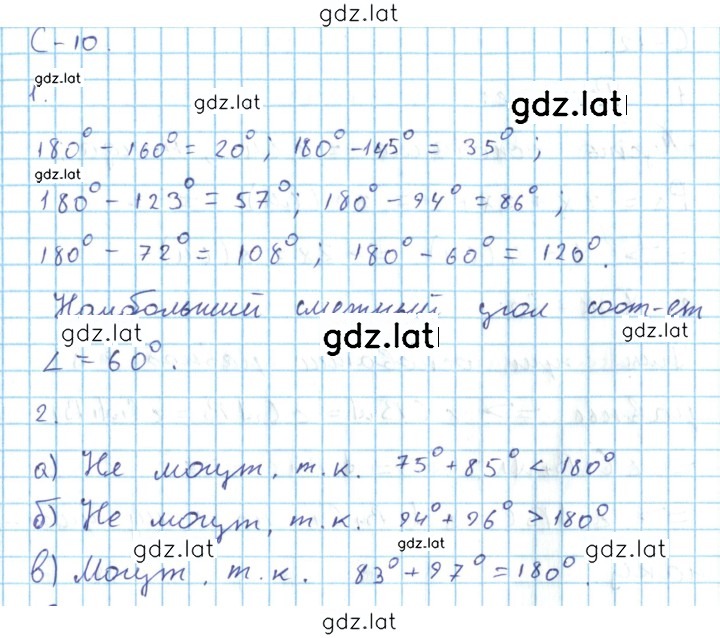 gdz.lat
С-10.
gdz.lat
1.
gdz.lat
gdz.lat
180° - 160° = 20°; 180° - 145° = 35°;
gdz.lat
180° - 123° = 57°; 180° - 94° = 86°;
180° - 72° = 108°; 180° - 60° = 120°.
Наибольший смежный угол соот-ет
gdz.lat
gdz.lat
gdz.lat
∠ = 60°.
2.
а) Не могут, т.к. 75° + 85° < 180°
б) Не могут, т.к. 94° + 96° > 180°
gdz.lat
gdz.lat
gdz.lat
в) Могут, т.к. 83° + 97° = 180°.
gdz.lat